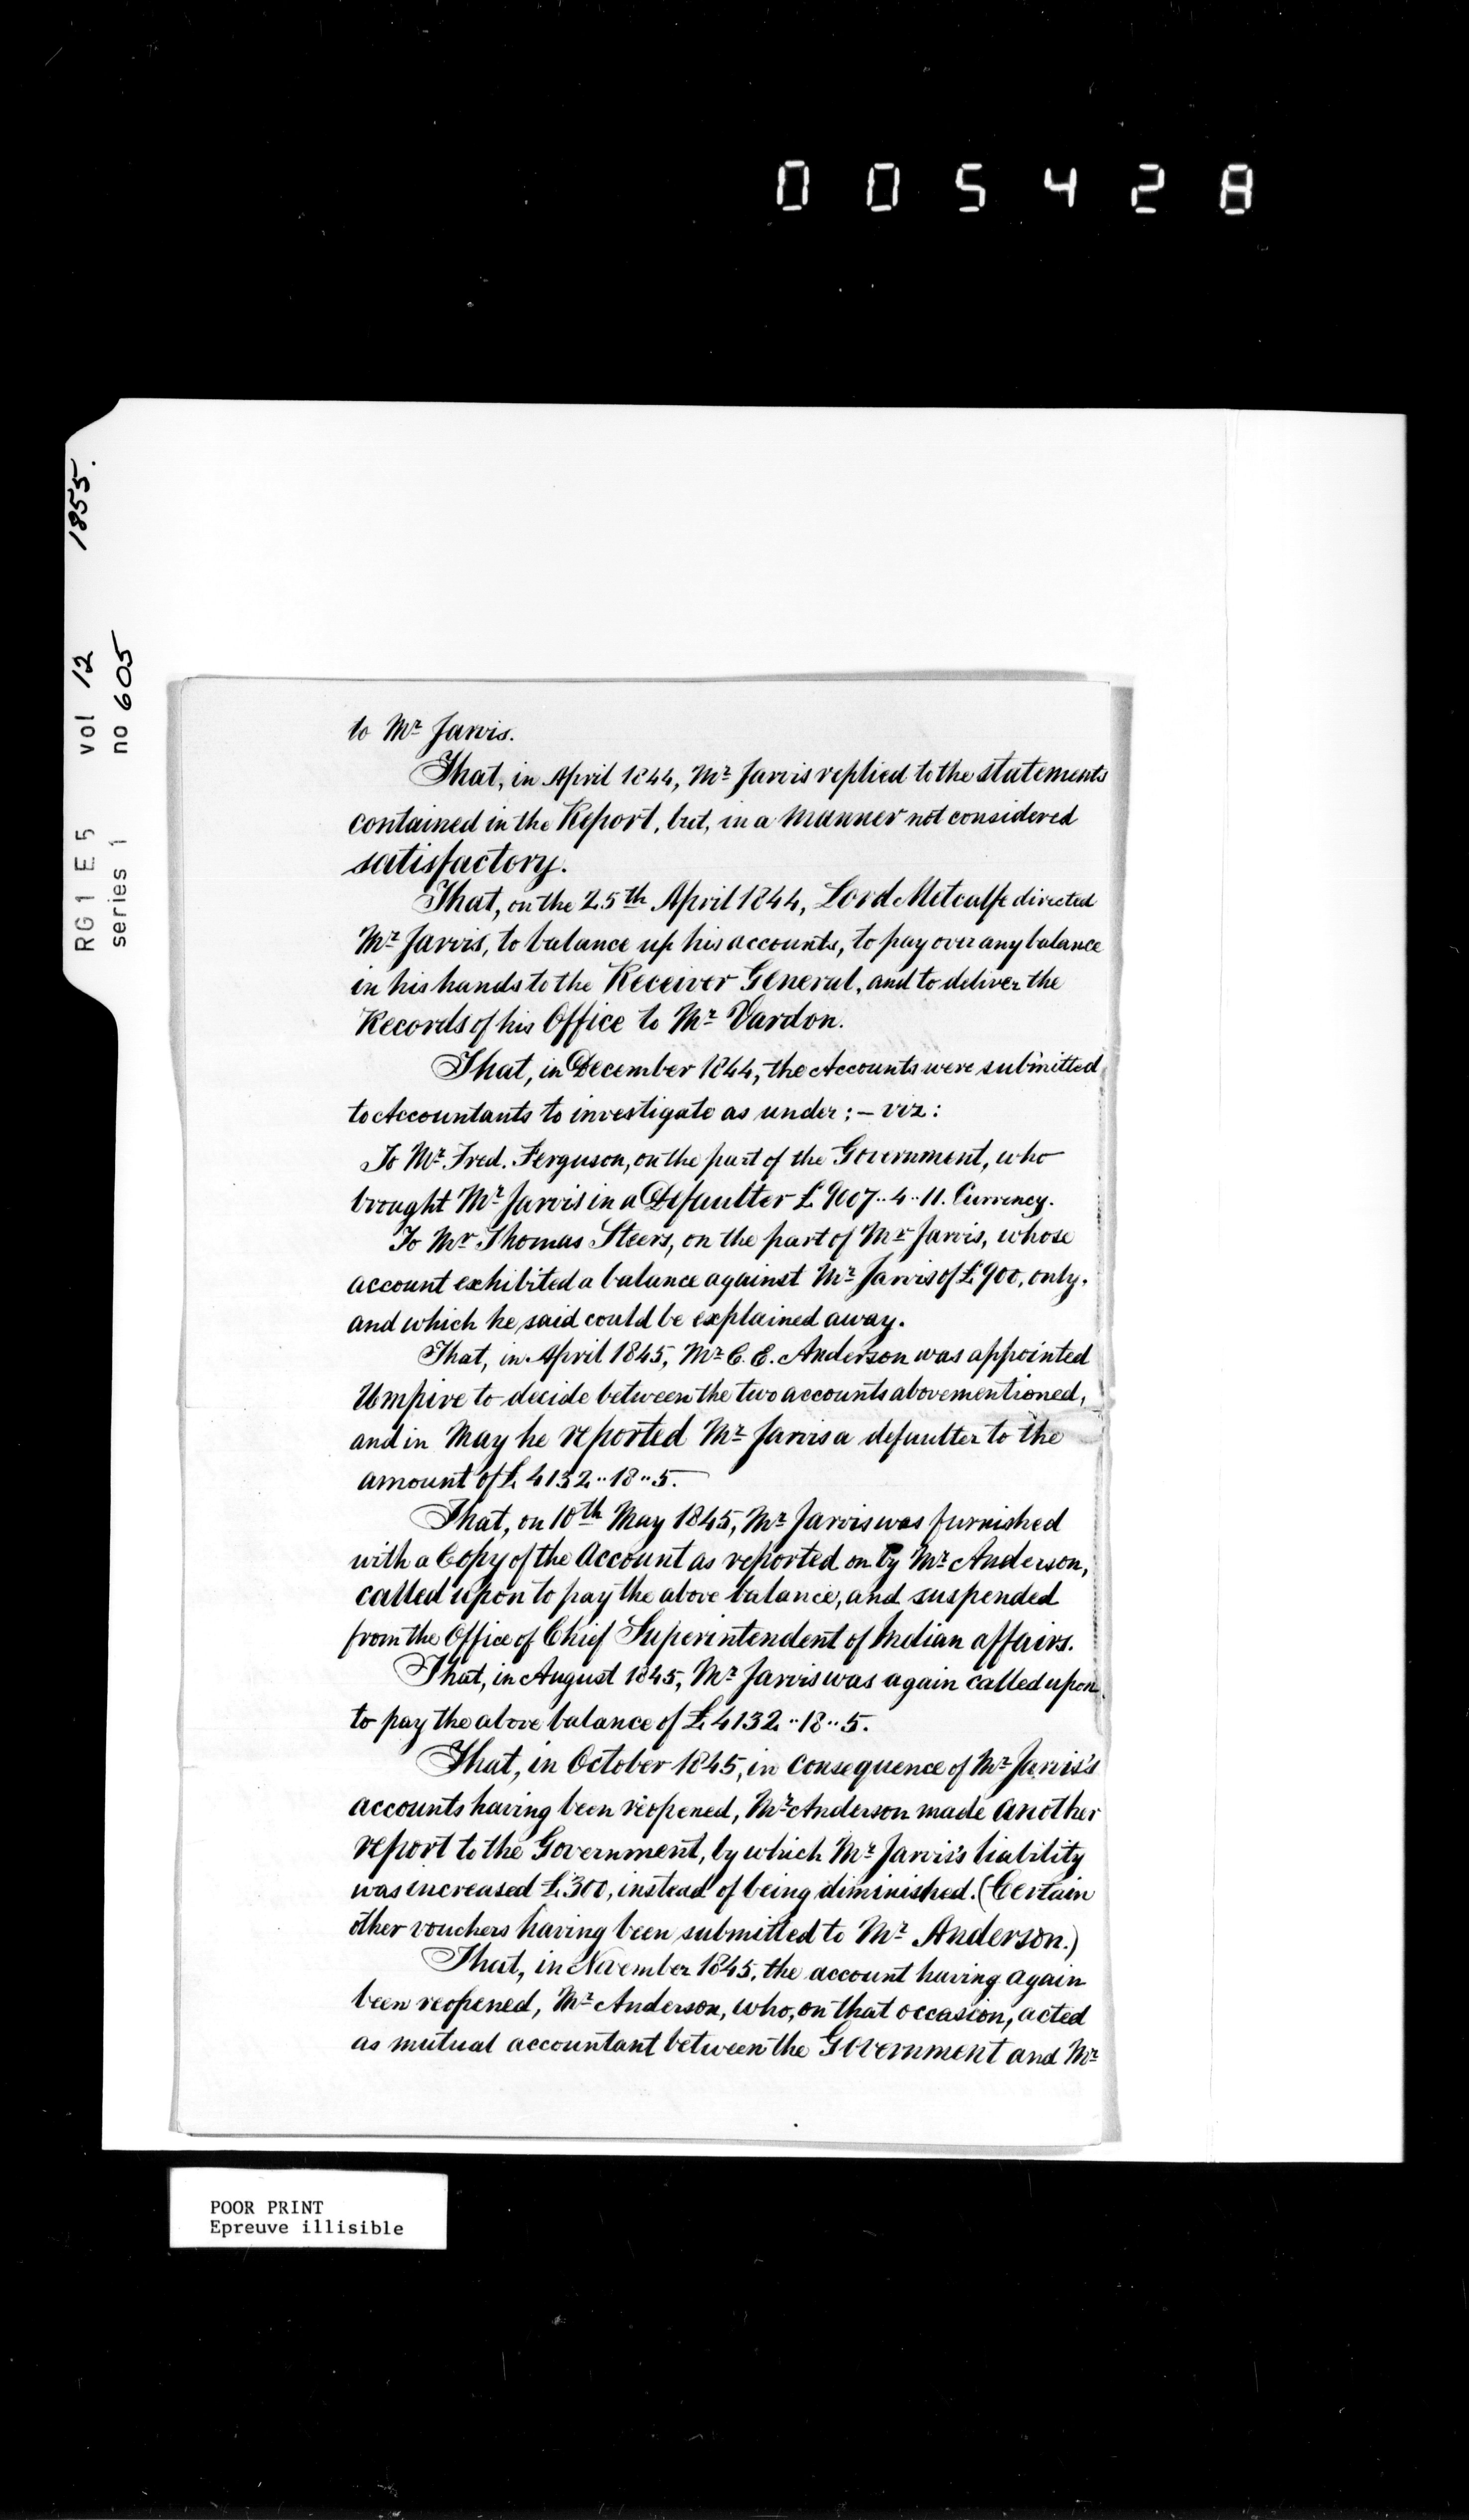 005428
1855.
vol 12
no 605
RG1 E5
series 1
to Mr Jarvis.
That, in April 1844, Mr Jarvis replied to the statements
contained in the Report, but, in a manner not considered
satisfactory.
That, on the 25th April 1844, Lord Metcalfe directed
Mr Jarvis, to balance up his accounts, to pay over any balance
in his hands to the Receiver General, and to deliver the
Records of his Office to Mr Vardon.
That, in December 1844, the Accounts were submitted
to Accountants to investigate as under: – viz:
To Mr Fred. Ferguson, on the part of the Government, who
brought Mr Jarvis in a Defaulter £9007..4..11. Currency.
To Mr Thomas Steers, on the part of Mr Jarvis, whose
account exhibited a balance against Mr Jarvis of £900, only,
and which he said could be explained away.
That, in April 1845, Mr C. E. Anderson was appointed
Umpire to decide between the two accounts abovementioned,
and in May he reported Mr Jarvis a defaulter to the
amount of £4132..18..5.
That, on 10th May 1845, Mr Jarvis was furnished
with a Copy of the Account as reported on by Mr Anderson,
called upon to pay the above balance, and suspended
from the Office of Chief Superintendent of Indian affairs.
That, in August 1845, Mr Jarvis was again called upon
to pay the above balance of £4132..18..5.
That, in October 1845, in consequence of Mr Jarvis's
accounts having been reopened, Mr Anderson made another
report to the Government, by which Mr Jarvis's liability
was increased £300, instead of being diminished. (Certain
other vouchers having been submitted to Mr Anderson.)
That, in November 1845, the account having again
been reopened, Mr Anderson, who, on that occasion, acted
as mutual accountant between the Government and Mr
POOR PRINT
Epreuve illisible